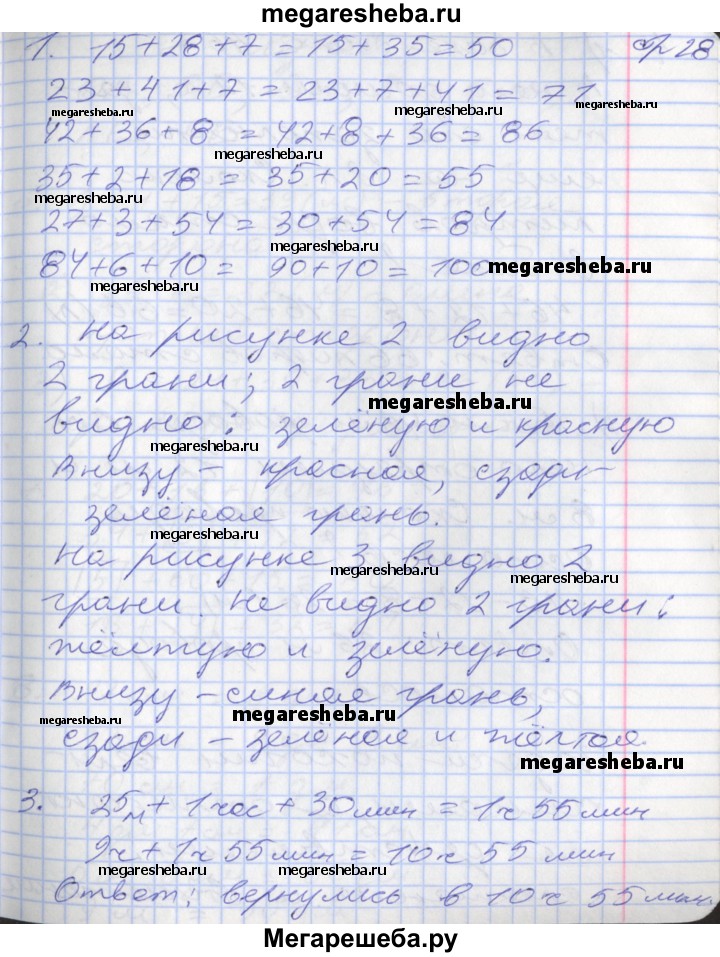 megaresheba.ru
1. 15+28+7 = 15+35 = 50 стр 28
23+41+7 = 23+7+41 = 71
megaresheba.ru megaresheba.ru megaresheba.ru
42+36+8 = 42+8+36 = 86
megaresheba.ru
35+2+18 = 35+20 = 55
megaresheba.ru
27+3+54 = 30+54 = 84
megaresheba.ru
84+6+10 = 90+10 = 100
megaresheba.ru
megaresheba.ru
2. На рисунке 2 видно
2 грани; 2 грани не
megaresheba.ru
видно: зелёную и красную
megaresheba.ru
Внизу – красная, сзади –
зелёная грань.
megaresheba.ru
На рисунке 3 видно 2
megaresheba.ru
megaresheba.ru
грани. Не видно 2 грани:
жёлтую и зелёную.
megaresheba.ru
Внизу – синяя грань,
megaresheba.ru megaresheba.ru
сзади – зелёная и жёлтая.
megaresheba.ru
3. 25м + 1 час + 30мин = 1ч 55мин
9ч + 1ч 55мин = 10ч 55 мин
megaresheba.ru megaresheba.ru
Ответ: вернулись в 10ч 55мин.
megaresheba.ru
Мегарешеба.ру